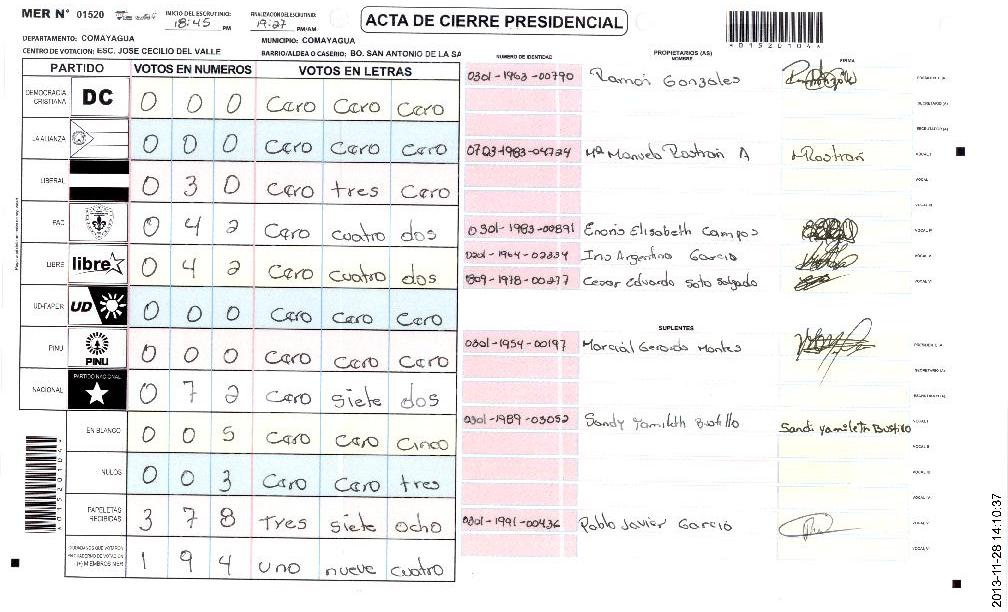 MER N° 01520
INICIO DEL ESCRUTINIO: 18:45 PM
FINALIZACION DEL ESCRUTINIO: 19:27 PM/AM
ACTA DE CIERRE PRESIDENCIAL
*01520104*
DEPARTAMENTO: COMAYAGUA
MUNICIPIO: COMAYAGUA
CENTRO DE VOTACION: ESC. JOSE CECILIO DEL VALLE
BARRIO/ALDEA O CASERIO: BO. SAN ANTONIO DE LA SA
PARTIDO VOTOS EN NUMEROS VOTOS EN LETRAS
DEMOCRACIA CRISTIANA DC 0 0 0 Cero Cero Cero
LA ALIANZA 0 0 0 Cero Cero Cero
LIBERAL 0 3 0 Cero tres Cero
PAC 0 4 2 Cero cuatro dos
LIBRE libre 0 4 2 Cero cuatro dos
UD-FAPER UD 0 0 0 Cero Cero Cero
PINU PINU 0 0 0 Cero Cero Cero
NACIONAL PARTIDO NACIONAL 0 7 2 Cero siete dos
EN BLANCO 0 0 5 Cero Cero Cinco
NULOS 0 0 3 Cero Cero tres
PAPELETAS RECIBIDAS 3 7 8 tres siete ocho
CIUDADANOS QUE VOTARON EN CUADERNO DE VOTACION (+) MIEMBROS MER 1 9 4 uno nueve cuatro
*01520104*
NUMERO DE IDENTIDAD PROPIETARIOS (AS) NOMBRE FIRMA
0301-1963-00790 Ramón Gonzales PRESIDENTE (A)
SECRETARIO (A)
ESCRUTADOR (A)
0703-1983-04724 Mª Manuela Rostran A MRostran VOCAL I
VOCAL II
VOCAL III
0301-1983-00891 Enoris Elisabeth Campos VOCAL IV
Iris Argentina Garcia VOCAL V
Cesar Eduardo Soto Salgado VOCAL VI
SUPLENTES
0301-1954-00197 Marcial Gerardo Montes PRESIDENTE (A)
SECRETARIO (A)
ESCRUTADOR (A)
0301-1989-03052 Sandy Yamileth Bustillo Sandi Yamileth Bustillo VOCAL I
VOCAL II
VOCAL III
VOCAL IV
0301-1991-00436 Pablo Javier Garcia VOCAL V
VOCAL VI
2013-11-28 14:10:37